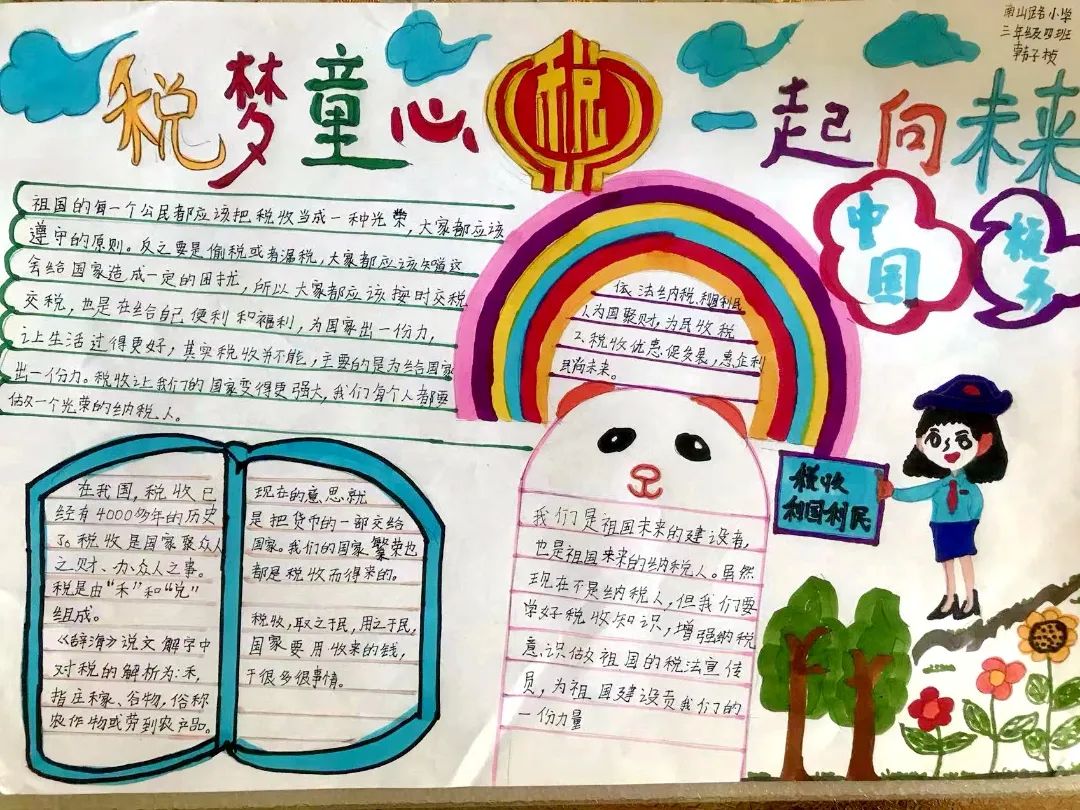 南山路小学
三年级四班
税梦童心 税 一起向未来
祖国的每一个公民都应该把税收当成一种光荣，大家都应该
遵守的原则。反之要是偷税或者漏税，大家都应该知道这
会给国家造成一定的困扰，所以大家都应该按时交税
交税，也是在给自己便利和福利，为国家出一份力，
让生活过得更好，其实税收并不能，主要的是为给国家
出一份力。税收让我们的国家变得更强大，我们每个人都要
做一个光荣的纳税人。
依法纳税、利国利民
1、为国聚财，为民收税
2、税收优惠促发展，惠企利
民向未来。
中国
税务
税收
利国利民
在我国，税收已
经有4000多年的历史
了。税收是国家聚众人
之财、办众人之事。
税是由“禾”和“兑”
组成。
《辞海》说文解字中
对税的解析为：禾，
指庄稼、谷物，俗称
农作物或劳到农产品。
现在的意思就
是把货币的一部交给
国家。我们的国家繁荣也
都是税收而得来的。
税收，取之于民，用之于民，
国家要用收来的钱，
干很多很事情。
我们是祖国未来的建设者，
也是祖国未来的纳税人。虽然
现在不是纳税人，但我们要
学好税收知识，增强纳税
意识做祖国的税法宣传
员，为祖国建设贡我们的
一份力量